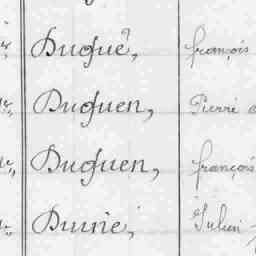 Dugué, françois
Duguen, Pierre
Duguen, françois
Durrie, Julien